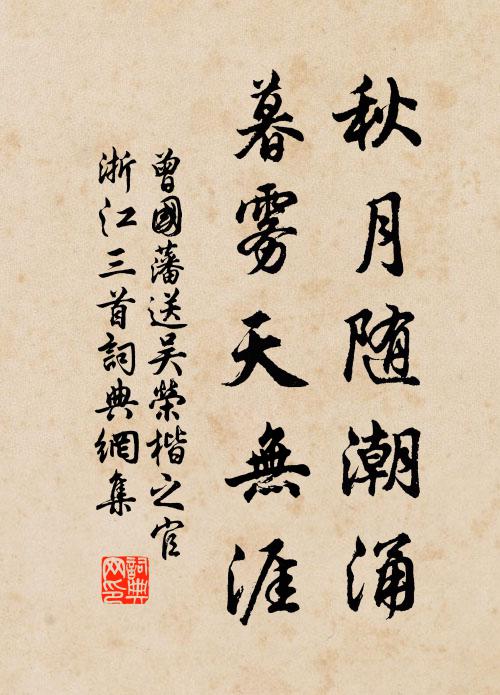 秋月随潮涌
暮雾天無涯
曾國藩送吴榮楷之官
浙江三首詞典網集
詞典網印